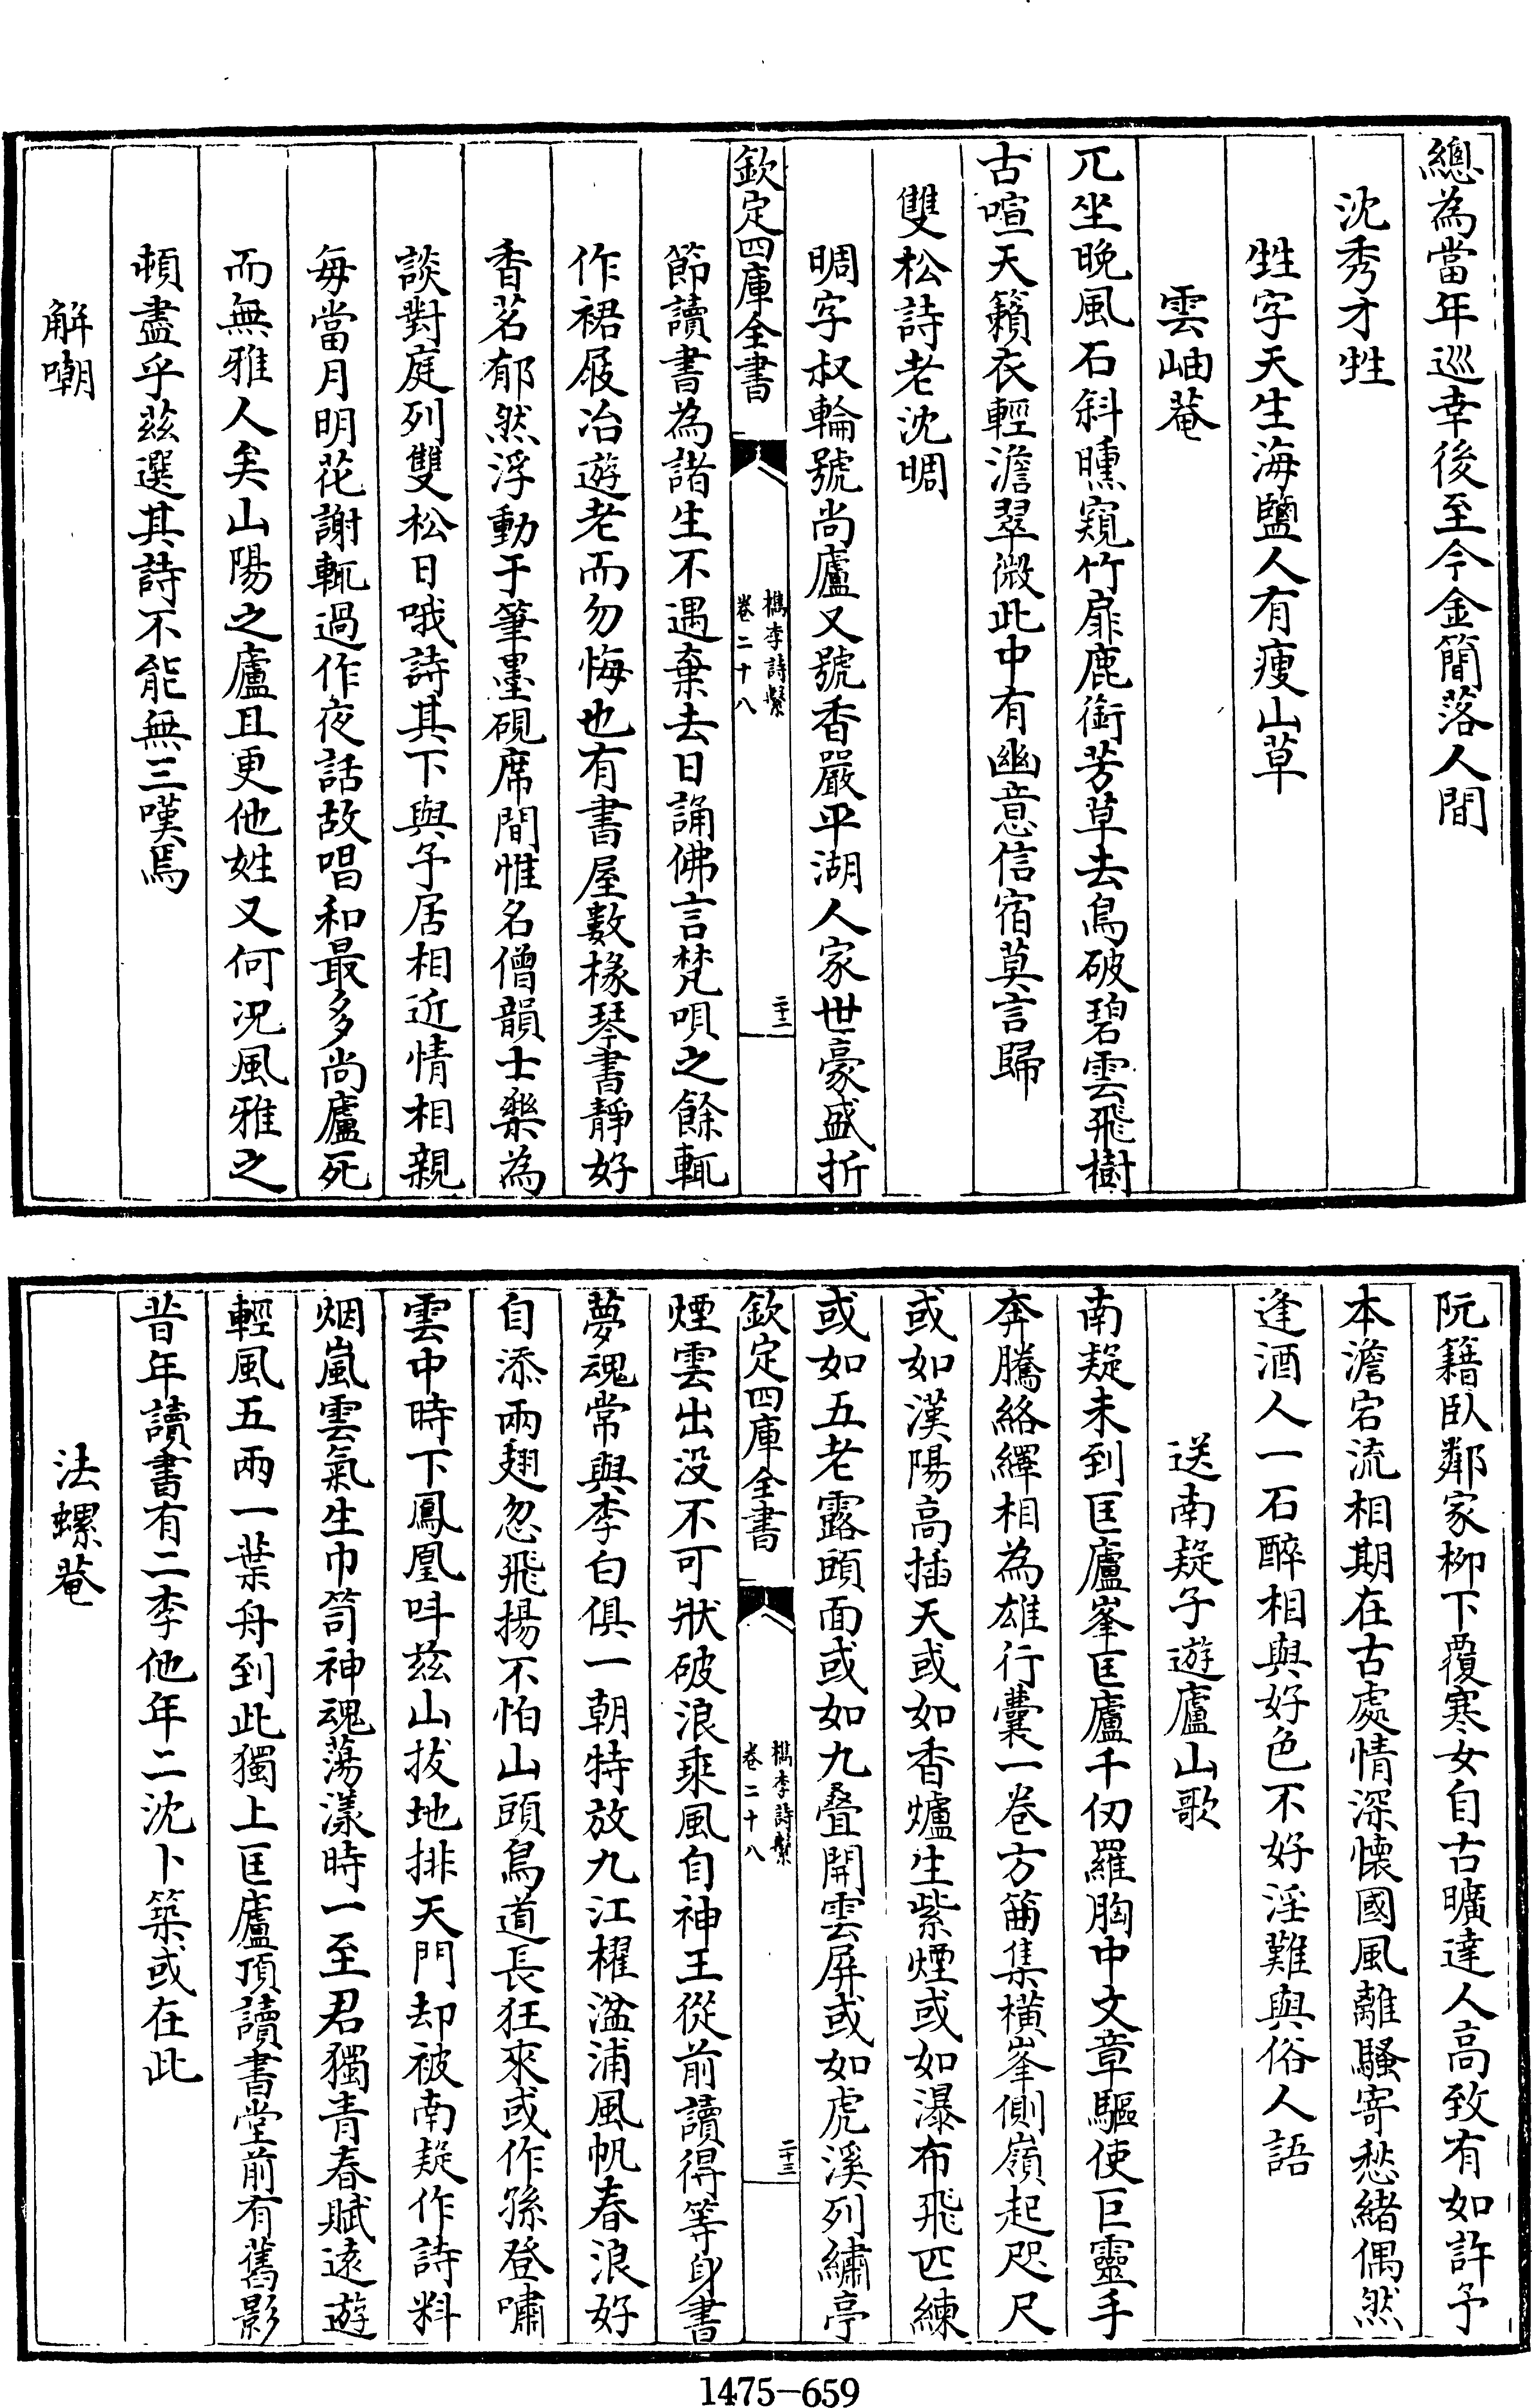 總為當年巡幸後至今金簡落人間
沈秀才甡
甡字天生海鹽人有瘦山草
雲岫菴
兀坐晚風石斜曛窺竹扉鹿銜芳草去鳥破碧雲飛樹
古喧天籟衣輕澹翠微此中有幽意信宿莫言歸
雙松詩老沈明
字叔輪號尚廬又號香嚴平湖人家世豪盛折
欽定四庫全書
檇李詩繫
卷二十八
二十二
節讀書為諸生不遇棄去日誦佛言梵唄之餘輒
作裙屐冶遊老而勿悔也有書屋數椽琴書靜好
香茗郁然浮動于筆墨硯席間惟名僧韻士樂為
談對庭列雙松日哦詩其下與予居相近情相親
每當月明花謝輒過作夜話故唱和最多尚廬死
而無雅人矣山陽之廬且更他姓又何況風雅之
頓盡乎茲選其詩不能無三嘆焉
解嘲
阮籍臥鄰家柳下覆寒女自古曠達人高致有如許予
本澹宕流相期在古處情深懷國風離騷寄愁緒偶然
逢酒人一石醉相與好色不好淫難與俗人語
送南疑子遊廬山歌
南疑未到匡廬峯匡廬千仞羅胸中文章驅使巨靈手
奔騰絡繹相為雄行囊一卷方笛集橫峯側嶺起咫尺
或如漢陽高插天或如香爐生紫煙或如瀑布飛匹練
或如五老露頭面或如九疊開雲屏或如虎溪列繡亭
欽定四庫全書
檇李詩繫
卷二十八
二十三
煙雲出沒不可狀破浪乘風自神王從前讀得等身書
夢魂常與李白俱一朝特放九江櫂湓浦風帆春浪好
自添兩翅忽飛揚不怕山頭鳥道長狂來或作孫登嘯
雲中時下鳳凰叫茲山拔地排天門却被南疑作詩料
烟嵐雲氣生巾笥神魂蕩漾時一至君獨青春賦遠遊
輕風五兩一葉舟到此獨上匡廬頂讀書堂前有舊影
昔年讀書有二李他年二沈卜築或在此
法螺菴
1475-659